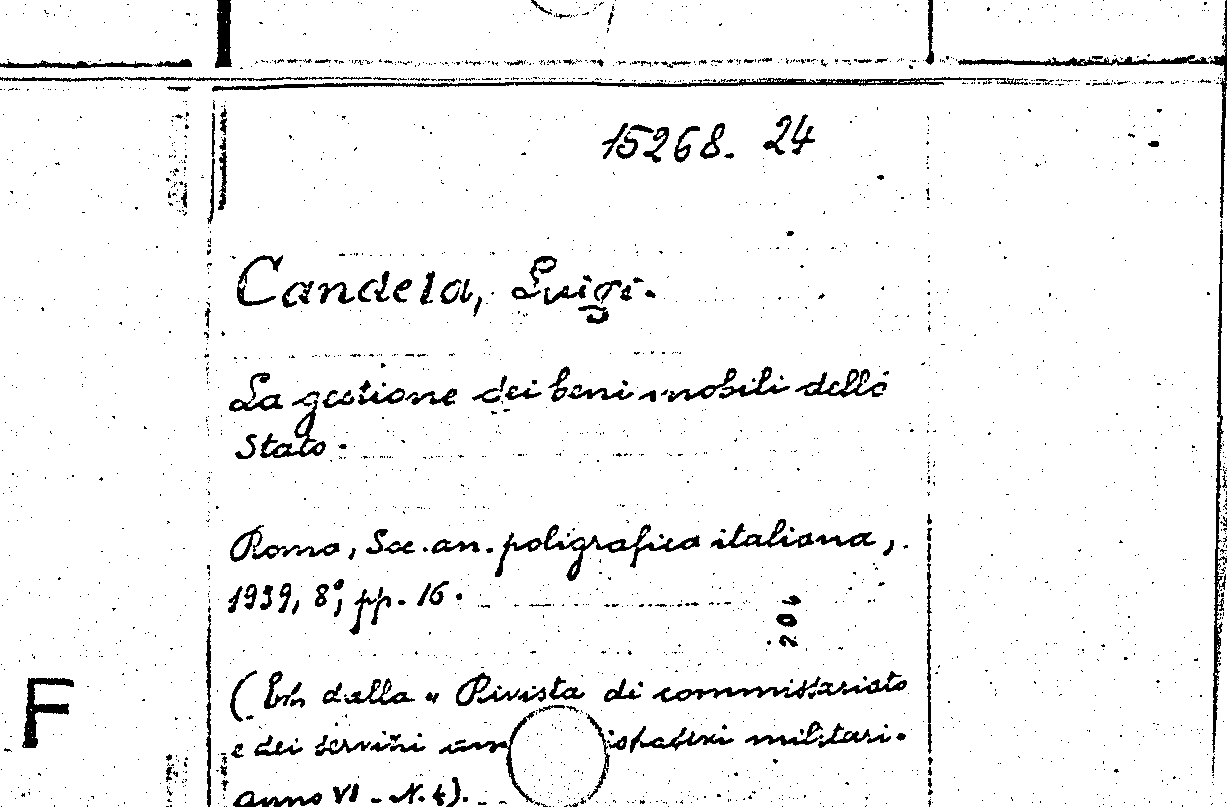 15268. 24
Candela, Luigi.
La gestione dei beni mobili dello
Stato.
Roma, Soc. an. poligrafica italiana,
1939, 8°, pp. 16.
204
(Estr. dalla « Rivista di commissariato
e dei servizi militari.
anno VI - N. 4).
F